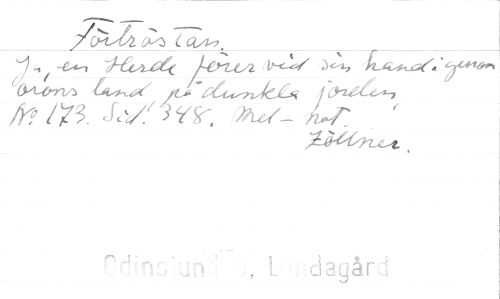 Förtröstan.
Ja, en Herde förer vid sin hand igenom
orons land på dunkla jorden,
No 173. Sid. 348. Mel-not.
Zöllner.
Odinslund, Lundagård